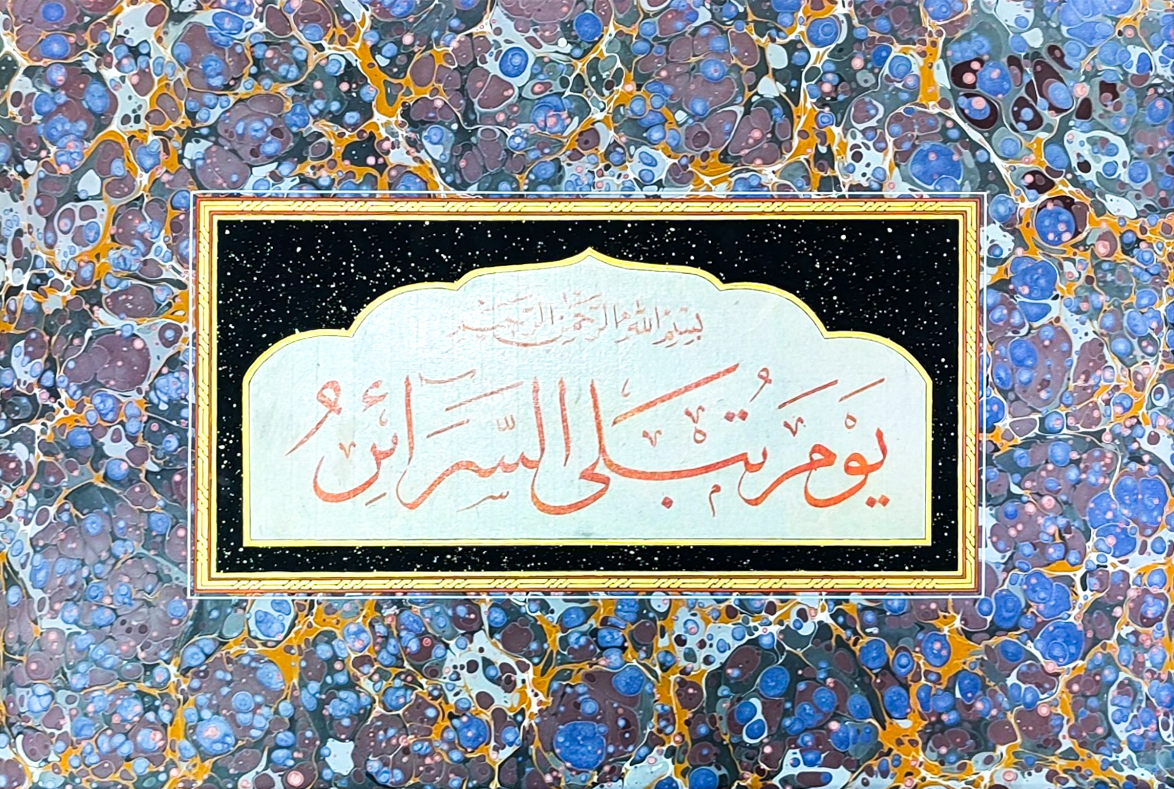 بسم الله الرحمن الرحيم
يَوْمَ تُبْلَى السَّرَائِرُ